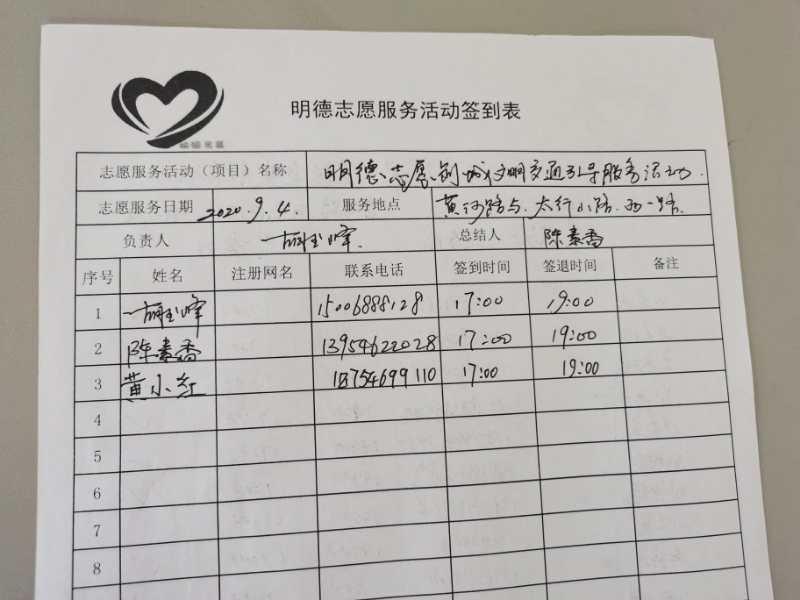 明德志愿服务活动签到表
志愿服务活动（项目）名称 明德志愿创城文明交通引导服务活动.
志愿服务日期 2020.9.4. 服务地点 黄河路与.太行山路.西一路.
负责人 总结人 陈素香
序号 姓名 注册网名 联系电话 签到时间 签退时间 备注
1 15006888128 17:00 19:00
2 陈素香 13954622028 17:00 19:00
3 黄小红 18754699110 17:00 19:00
4
5
6
7
8